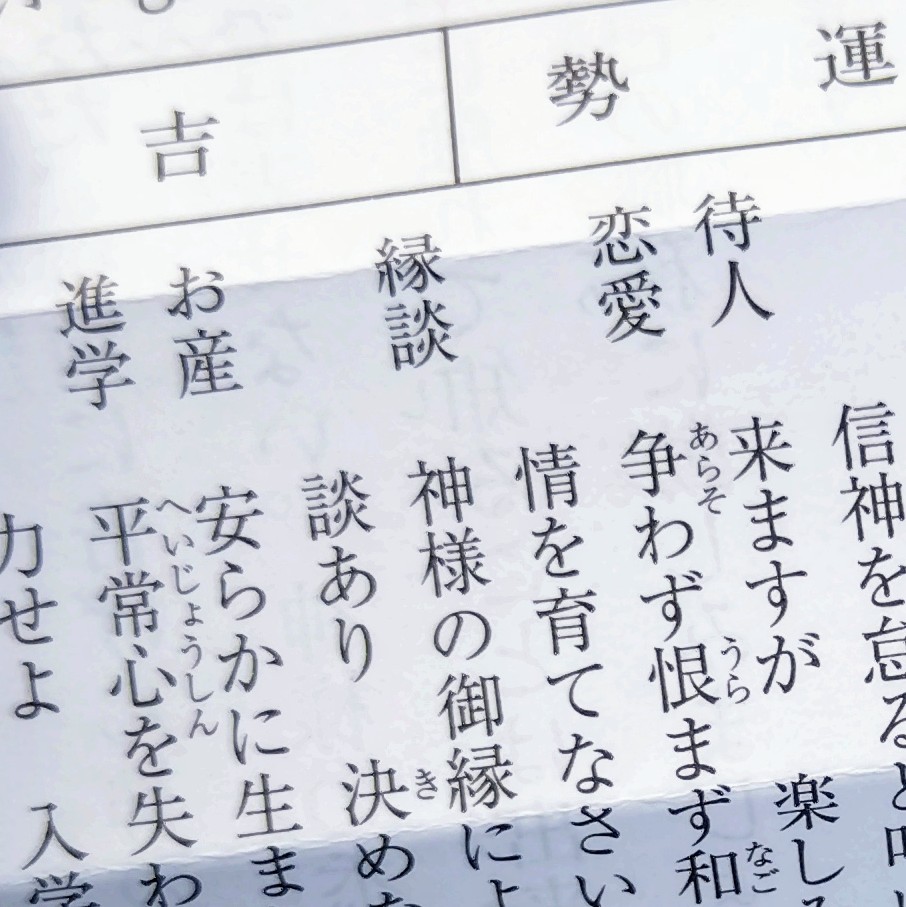 運勢
吉
信神を怠ると
待人 来ますが 楽し
恋愛 争わず恨まず和
情を育てなさい
縁談 神様の御縁によ
談あり 決めな
お産 安らかに生ま
進学 平常心を失わ
力せよ 入学
あらそ
うら
なご
き
へいじょうしん